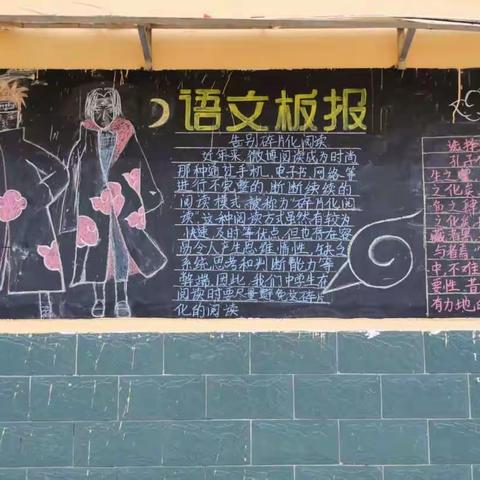 语文板报
告别碎片化阅读
近年来，微博阅读成为时尚
那种通过手机、电子书、网络等
进行不完整的、断断续续的
阅读模式，被称为“碎片化阅
读”。这种阅读方式虽然有较为
快速、及时等优点，但也存在容
易令人产生思维惰性，缺乏
系统思考和判断能力等
弊端。因此，我们中学生在
阅读时要尽量避免文碎片
化的阅读
选择
孔子
生之
之化
与看
中不难
要性。昔
有力地